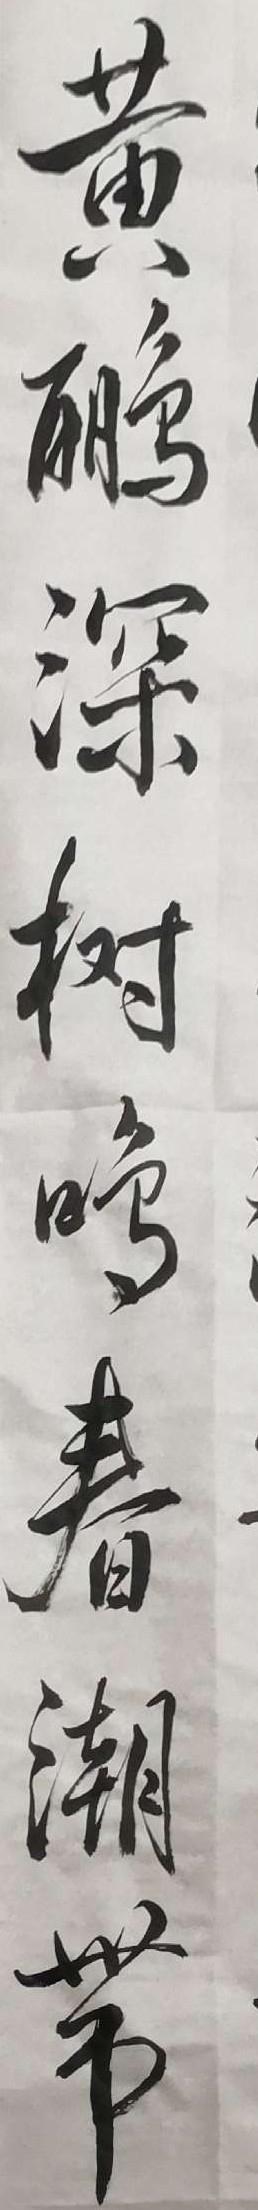 黄鹂深树鸣春潮带